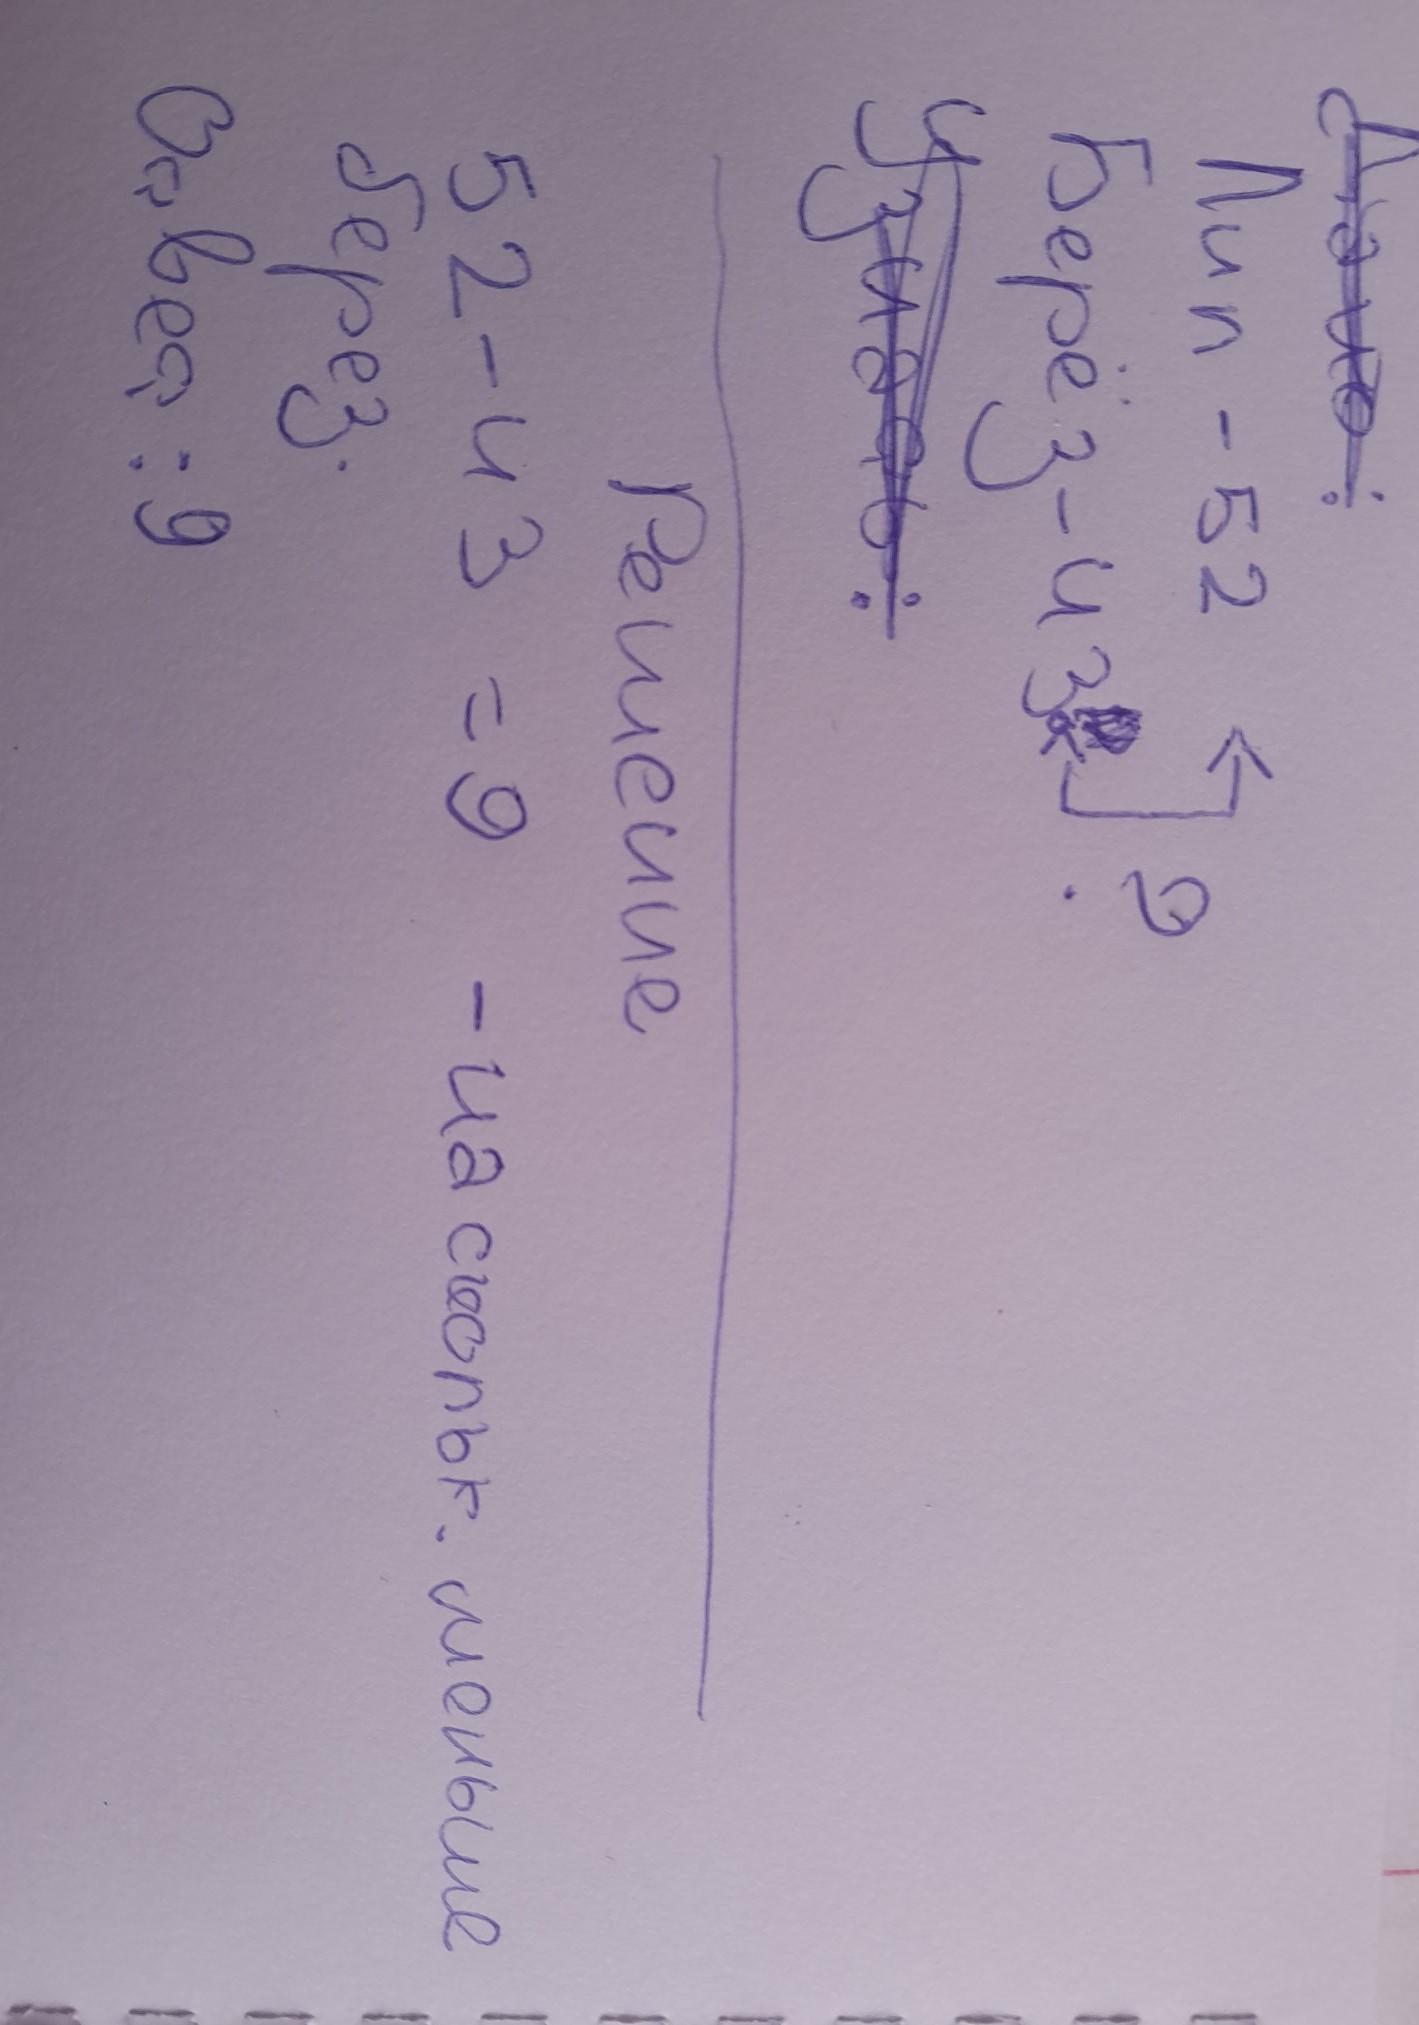 Дано:
Лип - 52
Берёз - 43 ?
Узнаю:
Решение
52 - 43 = 9 - на скольк. меньше
берез.
Ответ: 9